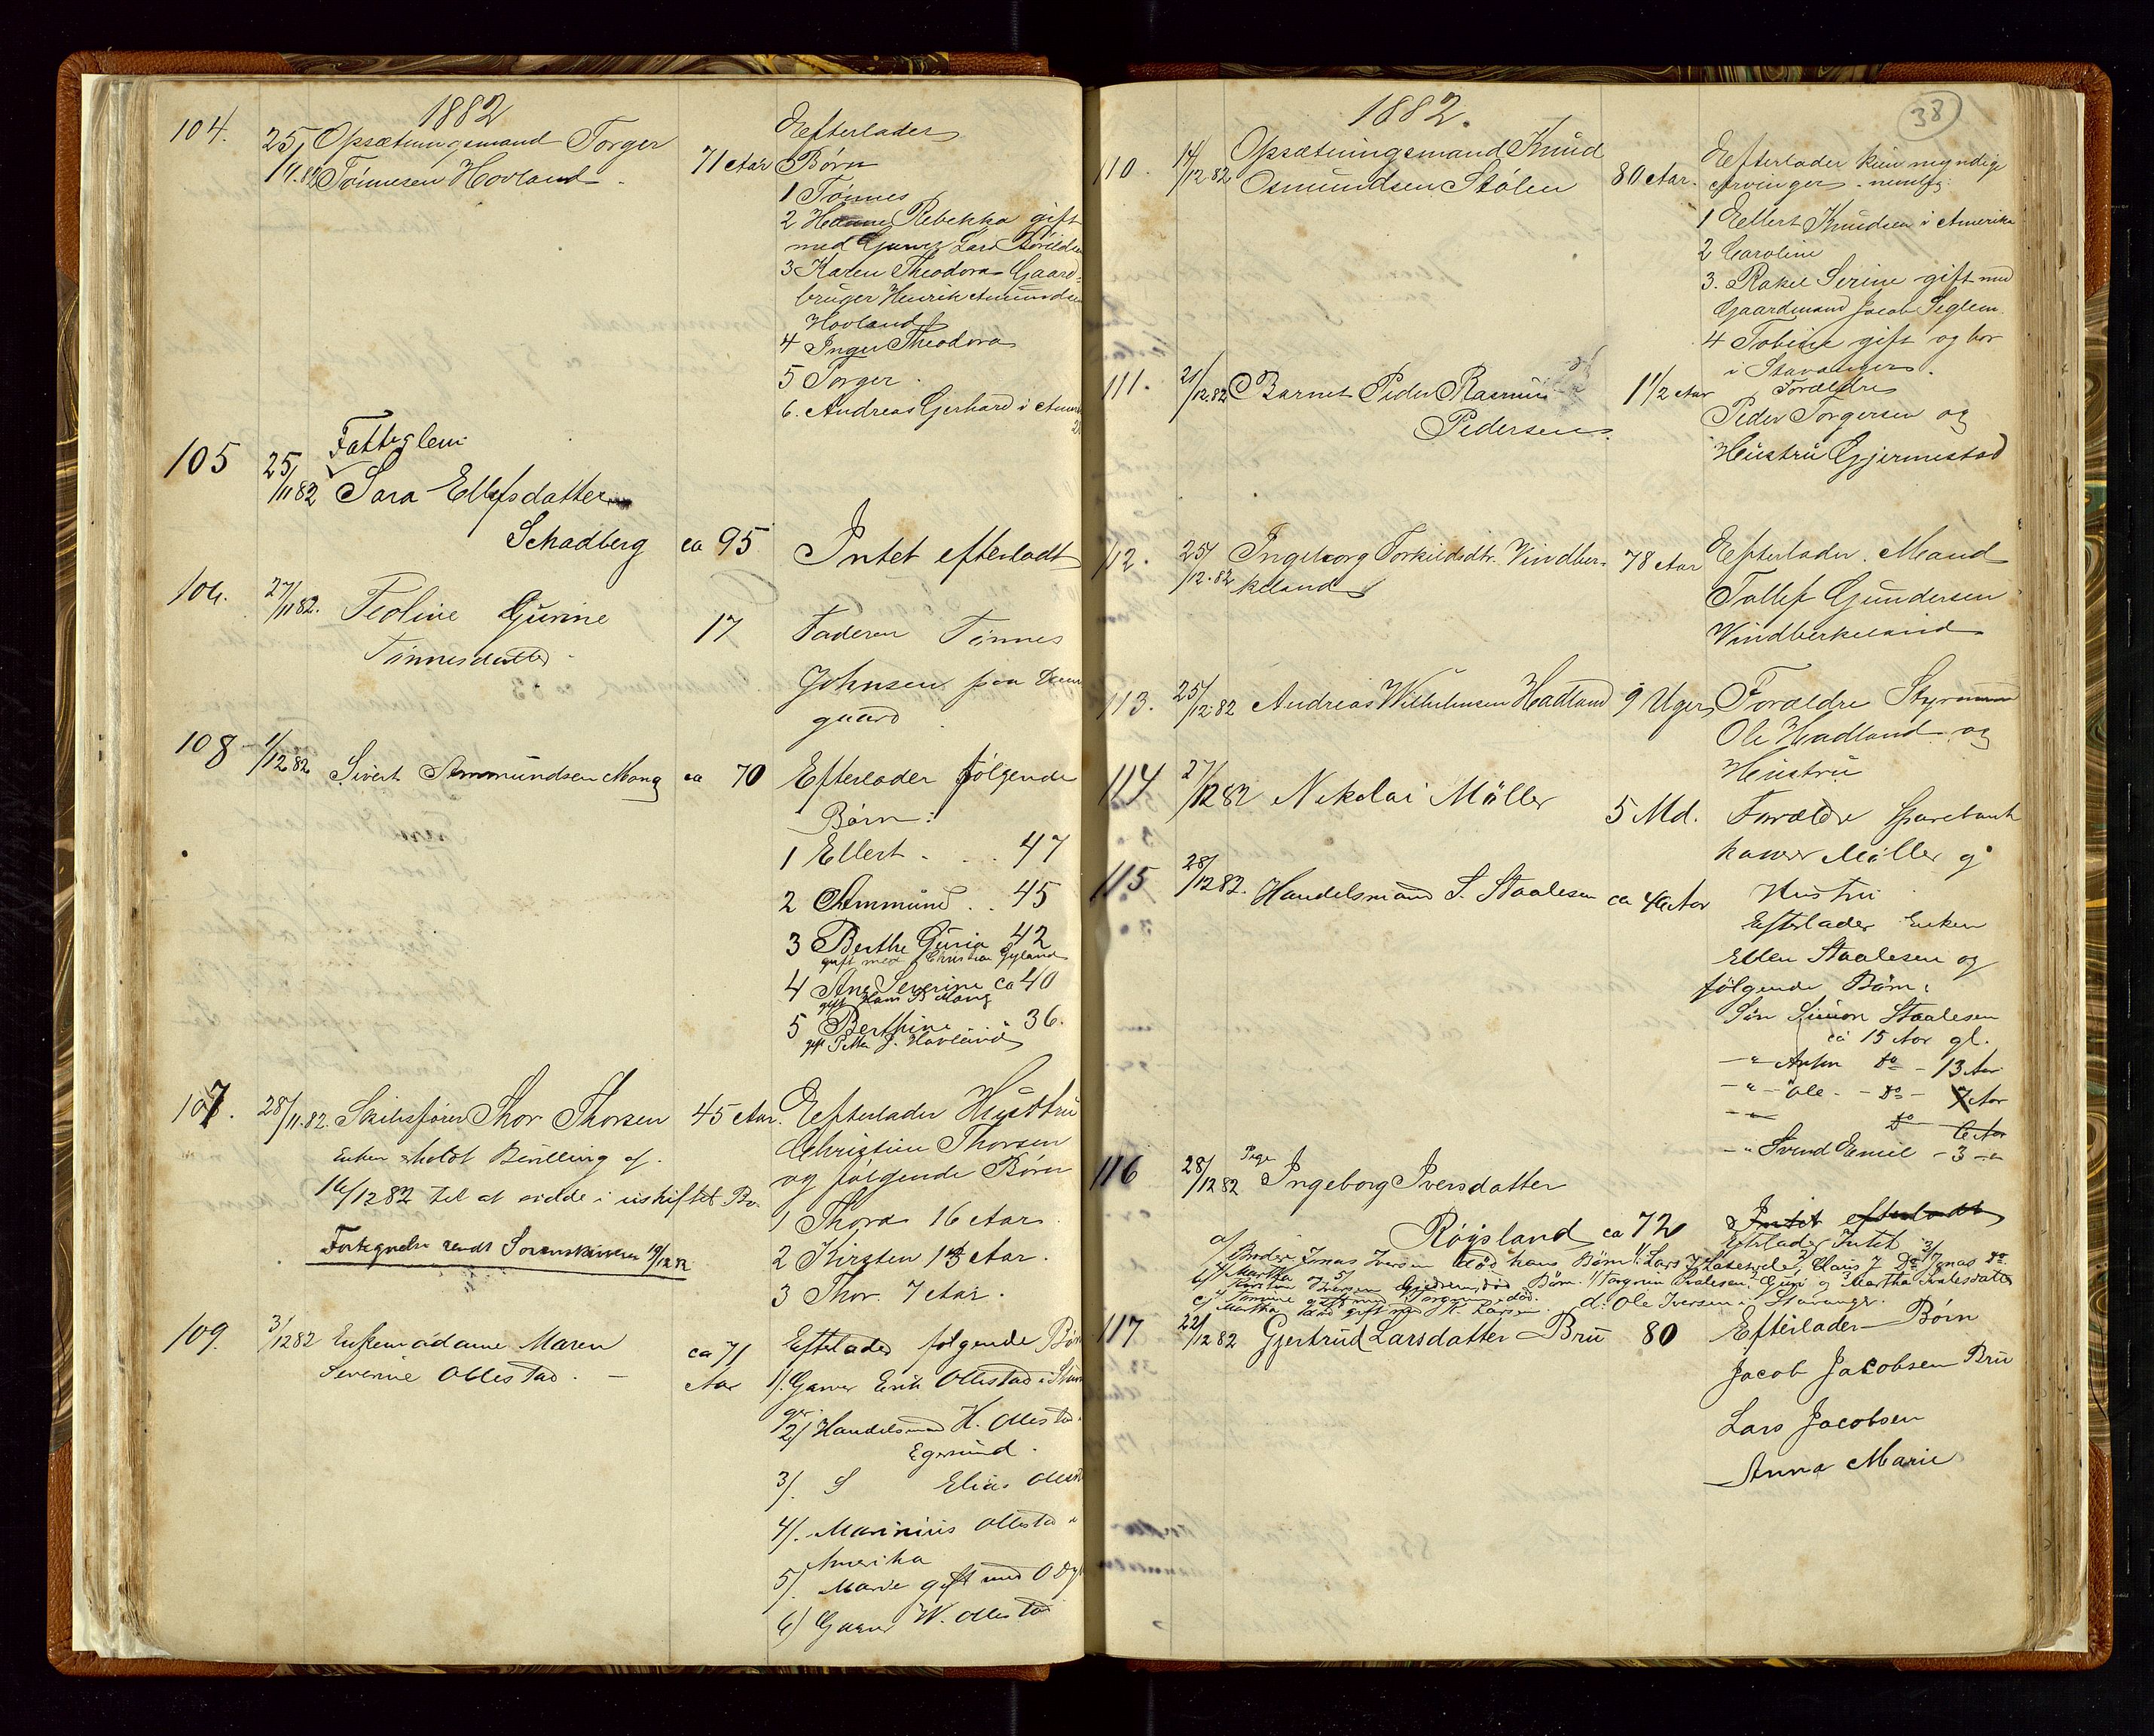 1882
104.
25/11.82 Opsætningsmand Torger
Tönnesen Hovland.
71 Aar
Efterlader
Børn
1 Tönnes
2 Hanne Rebekka gift
med Garver Lars
3 Karen Theodora Gaard-
bruger Henrik Amundsen
Hovland
4 Inger Theodora
5 Torger.
6. Andreas Gerhard i
105 25/11 82
Fattiglem
Sara Ellefsdatter
Schadberg ca 95
Intet efterladt
106. 27/11 82. Teoline Gurine
Tönnesdatter
17
Faderen Tönnes
Johnsen paa
gaard
108 1/12 82 Sivert Ammundsen Mong ca 70
Efterlader følgende
Børn:
1 Ellert . . . 47
2 Ammund . . 45
3 Berthe Guria 42
gift med Christian Gyland
4 Ane Severine ca 40
gift Hans B Mong
5 Berthine 36.
gift Petter J. Hovland
107. 28/11.82. Skibsfører Thor Thorsen 45 Aar.
Enken erholdt Bevilling af
16/12 82 til at sidde i uskiftet Bo.
Fortegnelse sendt Sorenskriveren 19/12 82
Efterlader Hustru
Christine Thorsen
og følgende Børn
1 Thora 16 Aar.
2 Kirsten 13 Aar.
3 Thor. 7 Aar.
109. 3/12 82 Enkemadame Maren
Severine Ollestad.
ca 71
Aar
Efterlader følgende Børn
1/. Garver Erik Ollestad i
ger.
2/ Handelsmand H. Ollestad
Egersund.
3/. S Elias
4/. Marinius Ollestad i
Amerika
5/. Marie gift med O
6) Garver W. Ollestad
1882.
38
110. 14/12 82 Opsætningsmand Knud
Osmundsen Stølen
80 Aar.
Efterlader kun myndige
Arvinger. nemlig:
1 Ellert Knudsen i Amerika
2 Caroline
3. Rakel Serine gift med
Gaardmand Jacob Seglem.
4 Tobine gift og bor
i Stavanger.
111. 21/12.82 Barnet Peder Rasmus
Pedersen.
1 1/2 Aar
Forældre
Peder Torgersen og
Hustru Gjermestad
112. 25/12.82 Ingeborg Torkildsdtr. Vindber-
keland
78 Aar
Efterlader. Mand
Tollef Gundersen
Vindberkeland
113. 25/12.82 Andreas Wilhelmsen Hadland 9 Uger
Forældre Styrmand
Ole Hadland og
Hustru
114 27/12 82 Nikolai Møller 5 Md.
Forældre Sparebank
kasser Møller og
Hustru
115 28/12 82. Handelsmand S. Staalesen ca 46 Aar
Efterlader Enken
Ellen Staalesen og
følgende Børn:
Søn Simon Staalesen
ca 15 Aar gl.
— " Anton do — 13 Aar
— " — Ole — do — 7 Aar
— " do 6 Aar
— " Svend Emil — 3 — "
116 28/12 82 Pige Ingeborg Iversdatter
Røysland ca 72
Intet efterladt
Efterlader Intet
a/ Broder Jonas Iversen død hans Børn: 1/ Lars J. 2/ Claus J. do 3/ Jonas do
b/ Børn: 1/ Torgrim 2/ Guri og 3/ Martha
c/
Martha død gift med K. Larsen. d: Ole Iversen i Stavanger.
117 22/12 82 Gjertrud Larsdatter Bru 80
Efterlader Børn
Jacob Jacobsen Bru
Lars Jacobsen
Anna Marie